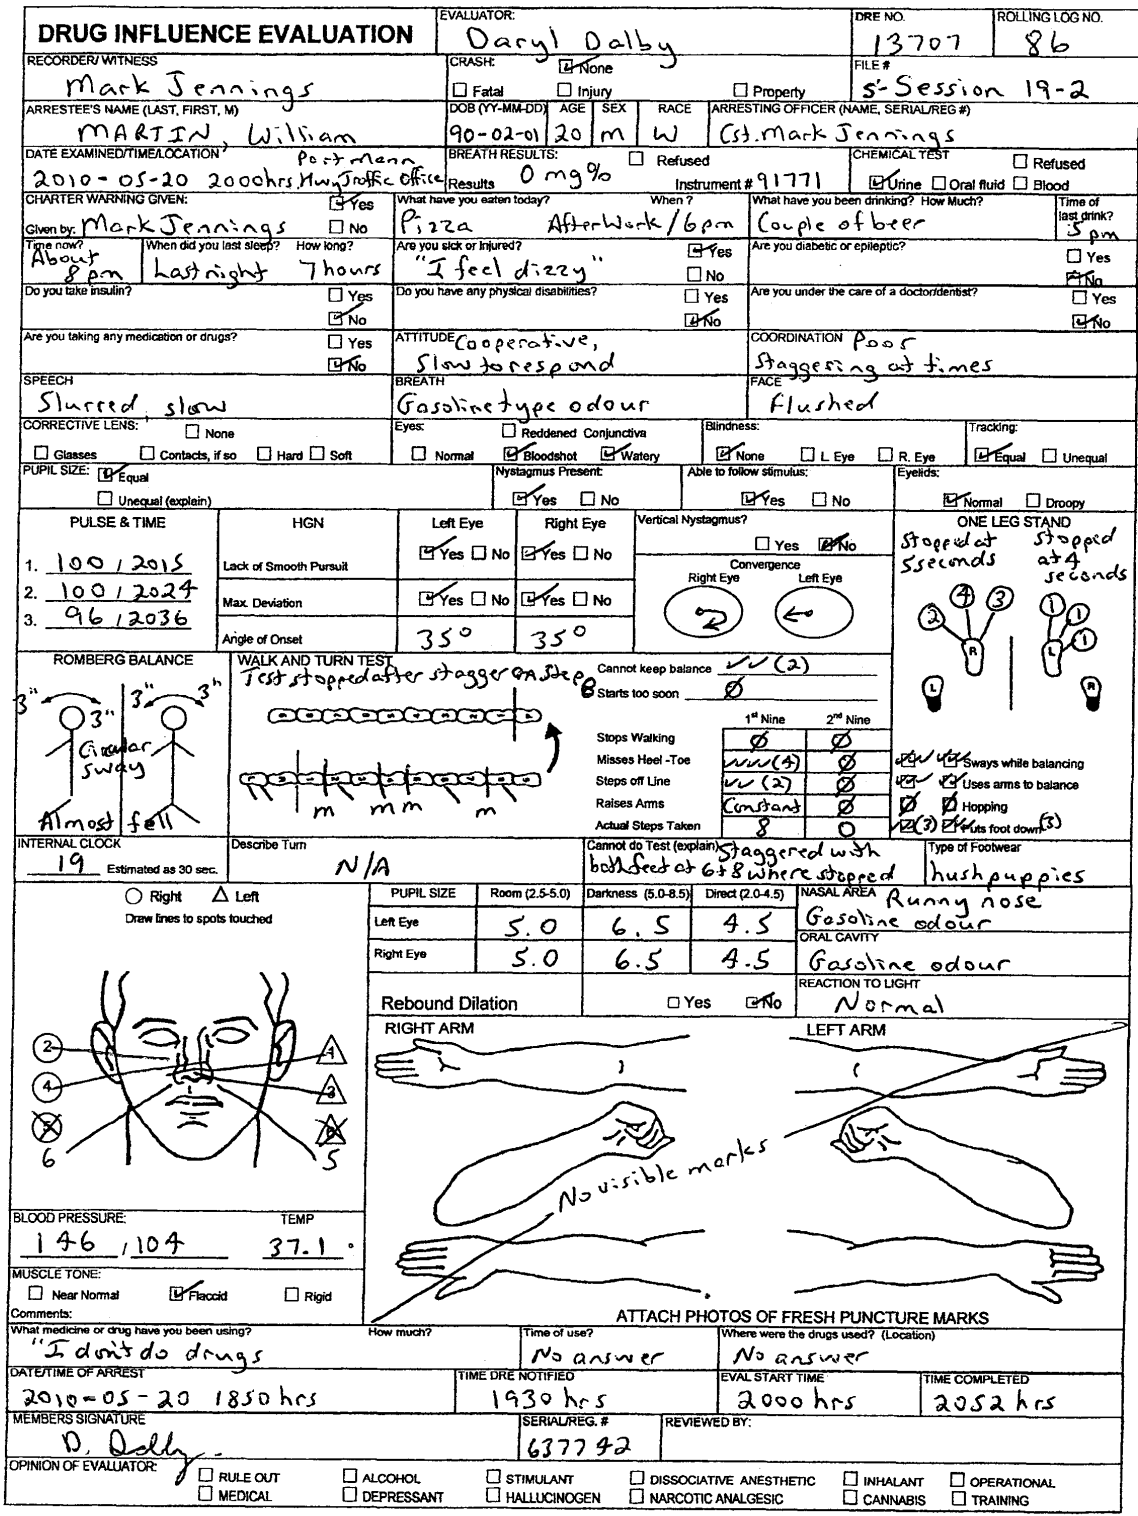 DRUG INFLUENCE EVALUATION
EVALUATOR: Daryl Dalby
DRE NO. 13707
ROLLING LOG NO. 86
RECORDER/ WITNESS Mark Jennings
CRASH: None
Fatal Injury Property
FILE # S'-Session 19-2
ARRESTEE'S NAME (LAST, FIRST, M) MARTIN, William
DOB (YY-MM-DD) 90-02-01
AGE 20
SEX m
RACE W
ARRESTING OFFICER (NAME, SERIAL/REG #) Cst. Mark Jennings
DATE EXAMINED/TIME/LOCATION Port Mann
2010-05-20 2000hrs, Hwy Traffic Office
BREATH RESULTS: Refused
Results 0 mg% Instrument # 91771
CHEMICAL TEST Refused
Urine Oral fluid Blood
CHARTER WARNING GIVEN: Yes
Given by: Mark Jennings No
What have you eaten today? When ?
Pizza AfterWork / 6pm
What have you been drinking? How Much?
Couple of beer
Time of last drink?
5pm
Time now?
About 8pm
When did you last sleep? How long?
Last night 7hours
Are you sick or Injured? Yes
"I feel dizzy" No
Are you diabetic or epileptic? Yes
No
Do you take insulin? Yes
No
Do you have any physical disabilities? Yes
No
Are you under the care of a doctor/dentist? Yes
No
Are you taking any medication or drugs? Yes
No
ATTITUDE Cooperative,
Slow to respond
COORDINATION Poor
Staggering at times
SPEECH
Slurred, slow
BREATH
Gasoline type odour
FACE
Flushed
CORRECTIVE LENS: None
Glasses Contacts, if so Hard Soft
Eyes: Reddened Conjunctiva
Normal Bloodshot Watery
Blindness:
None L. Eye R. Eye
Tracking:
Equal Unequal
PUPIL SIZE: Equal
Unequal (explain)
Nystagmus Present:
Yes No
Able to follow stimulus:
Yes No
Eyelids:
Normal Droopy
PULSE & TIME
1. 100 / 2015
2. 100 / 2024
3. 96 / 2036
HGN Left Eye Right Eye
Lack of Smooth Pursuit Yes No Yes No
Max. Deviation Yes No Yes No
Angle of Onset 35° 35°
Vertical Nystagmus?
Yes No
Convergence
Right Eye Left Eye
ONE LEG STAND
Stopped at 5seconds
stopped at 4 seconds
2 4 3 1 1 1
R L
L R
Sways while balancing
Uses arms to balance
Hopping
(3) Puts foot down (3)
ROMBERG BALANCE
3" 3" 3" 3"
Circular sway
Almost fell
WALK AND TURN TEST
Test stopped after stagger on step 8
m m m m
Cannot keep balance ✓✓ (2)
Starts too soon Ø
1st Nine 2nd Nine
Stops Walking Ø Ø
Misses Heel -Toe ✓✓✓ (4) Ø
Steps off Line ✓✓ (2) Ø
Raises Arms Constant Ø
Actual Steps Taken 8 0
INTERNAL CLOCK
19 Estimated as 30 sec.
Describe Turn
N/A
Cannot do Test (explain) Staggered with
both feet at 6+8 where stopped
Type of Footwear
hushpuppies
Right Left
Draw lines to spots touched
2 1
4 3
6 5
PUPIL SIZE Room (2.5-5.0) Darkness (5.0-8.5) Direct (2.0-4.5)
Left Eye 5.0 6.5 4.5
Right Eye 5.0 6.5 4.5
NASAL AREA Runny nose
Gasoline odour
ORAL CAVITY
Gasoline odour
Rebound Dilation Yes No
REACTION TO LIGHT
Normal
RIGHT ARM LEFT ARM
No visible marks
ATTACH PHOTOS OF FRESH PUNCTURE MARKS
BLOOD PRESSURE: TEMP
146 / 104 37.1 °
MUSCLE TONE:
Near Normal Flaccid Rigid
Comments:
What medicine or drug have you been using? How much?
"I don't do drugs
Time of use?
No answer
Where were the drugs used? (Location)
No answer
DATE/TIME OF ARREST
2010-05-20 1850hrs
TIME DRE NOTIFIED
1930 hrs
EVAL START TIME
2000hrs
TIME COMPLETED
2052 hrs
MEMBERS SIGNATURE
D. Dalby
SERIAL/REG. #
637742
REVIEWED BY:
OPINION OF EVALUATOR:
RULE OUT ALCOHOL STIMULANT DISSOCIATIVE ANESTHETIC INHALANT OPERATIONAL
MEDICAL DEPRESSANT HALLUCINOGEN NARCOTIC ANALGESIC CANNABIS TRAINING